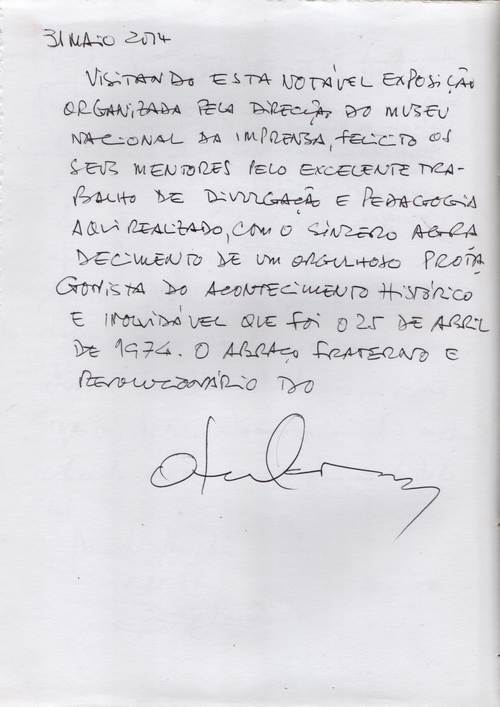 31 MAIO 2014
VISITANDO ESTA NOTÁVEL EXPOSIÇÃO
ORGANIZADA PELA DIRECÇÃO DO MUSEU
NACIONAL DA IMPRENSA, FELICITO OS
SEUS MENTORES PELO EXCELENTE TRA-
BALHO DE DIVULGAÇÃO E PEDAGOGIA
AQUI REALIZADO, COM O SINCERO AGRA
DECIMENTO DE UM ORGULHOSO PROTA
GONISTA DO ACONTECIMENTO HISTÓRICO
E INOLVIDÁVEL QUE FOI O 25 DE ABRIL
DE 1974. O ABRAÇO FRATERNO E
REVOLUCIONÁRIO DO